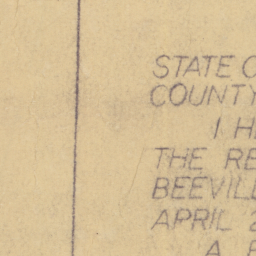 STATE O
COUNTY
I H
THE RE
BEEVILL
APRIL 2
A